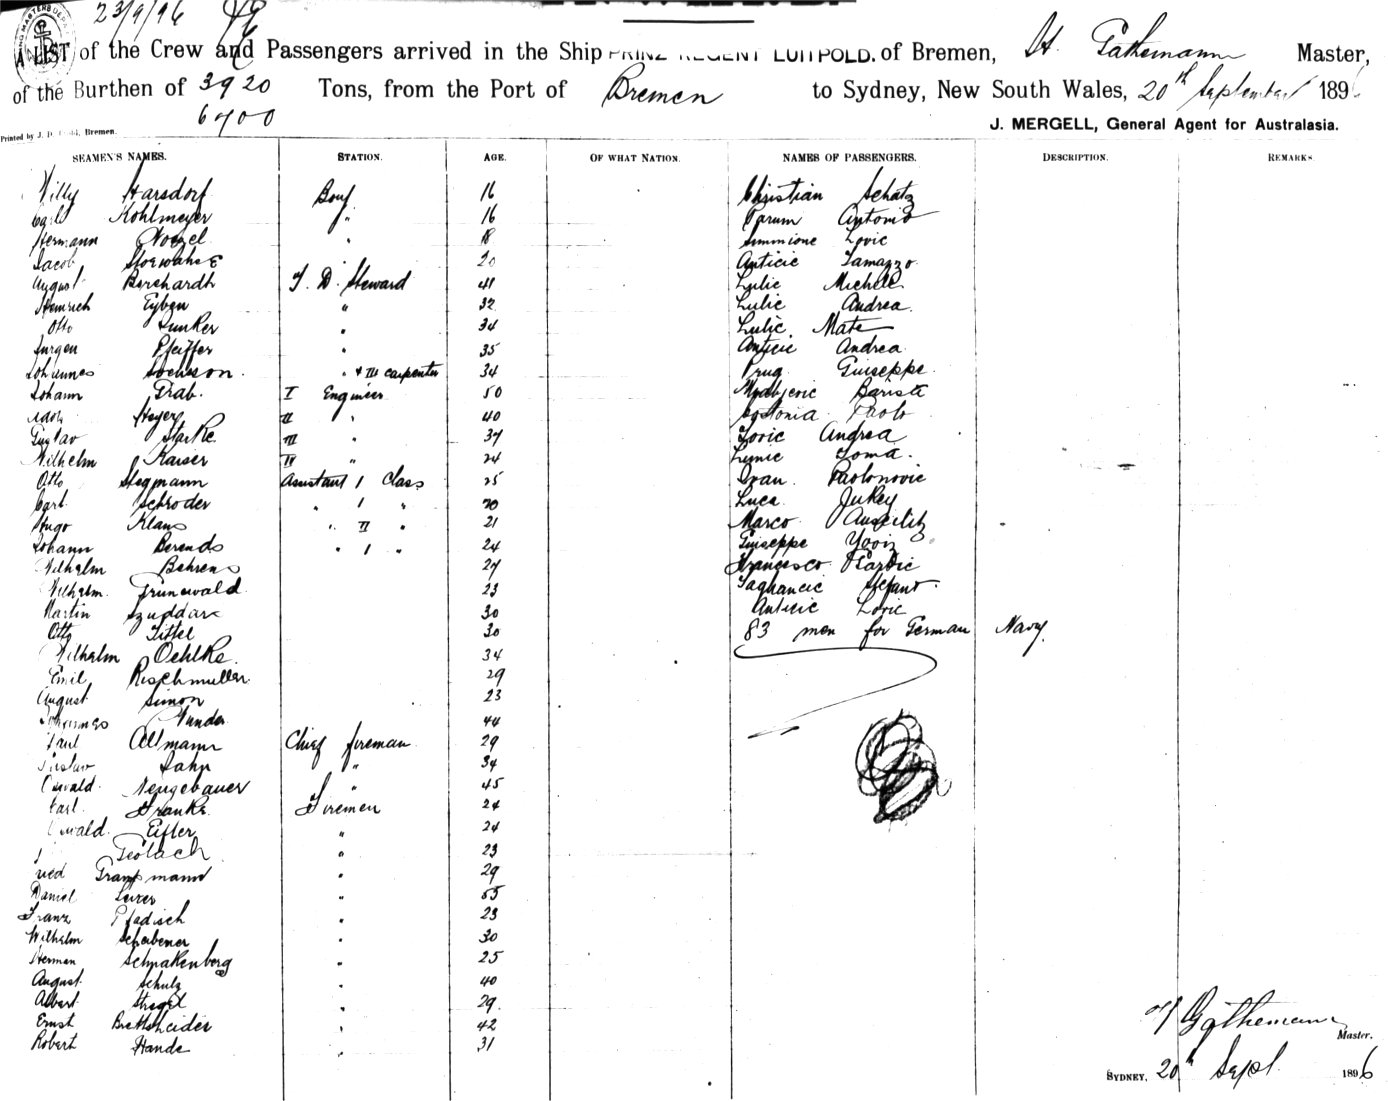 23/9/96
A LIST of the Crew and Passengers arrived in the Ship PRINZ REGENT LUITPOLD. of Bremen, H. Gathemann Master,
of the Burthen of 3920 Tons, from the Port of Bremen to Sydney, New South Wales, 20th September 1896
6400
Printed by J. D. Bremen.
J. MERGELL, General Agent for Australasia.
SEAMEN'S NAMES. STATION. AGE. OF WHAT NATION. NAMES OF PASSENGERS. DESCRIPTION. REMARKS.
Willy Harsdorf Boy 16 Christian Schatz
Carl Kohlmeyer " 16 Parum Antonio
Hermann " 18 Simmione Lovic
Jacob 20 Anticic Tamazzo
August Borchardt T. D. Steward 41 Lulic Michele
Heinrich Eyben " 32 Lulic Andrea.
Otto Lunker " 34 Lulic. Mate
Jurgen Pfeiffer " 35 Anticic Andrea
Johannes Svensson. " & III carpenter 34 Prug Guiseppe.
Johann Grab. I Engineer 50 Barista
Adolf Heyer II " 40 Paolo
Gustav Starke III " 37 Lovic Andrea
Wilhelm Kaiser IV " 24 Lemic Toma.
Otto Stegmann Assistant 1 Class 25 Ivan. Pavlonovic
Carl Schroder " 1 " 20 Luca Jukey
Hugo Klans " II " 21 Marco
Johann Berends " 1 " 24 Guiseppe
Wilhelm Behrens 27 Francesco
Wilhelm Grunewald 23 Taghancic Stefano
Martin Szuddars 30 Anticic Lovic
Otto Tittel 30 83 men for German Navy.
Wilhelm Oehlke. 34
Emil Rischmuller 29
August Simon 23
Johannes Wunder 44
Paul Altmann Chief fireman 29
Gustav Jahn " 34
Oswald Neugebauer " 45
Carl. Franke Firemen 24
Oswald. Eifler " 24
Gerlach " 23
Trampmann " 29
Daniel " 55
Franz Pfadisch " 23
Wilhelm Scheibener " 30
Herman Schnakenberg " 25
August. Schulz " 40
Albert Stregel " 29.
Ernst Brettscheider " 42
Robert Hande " 31
H Gathemann
Master.
SYDNEY, 20th Sept. 1896